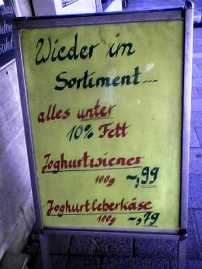 Wieder im
Sortiment...
alles unter
10% Fett
Joghurtwiener
100g ~,99
Joghurtleberkäse
100g ~,79